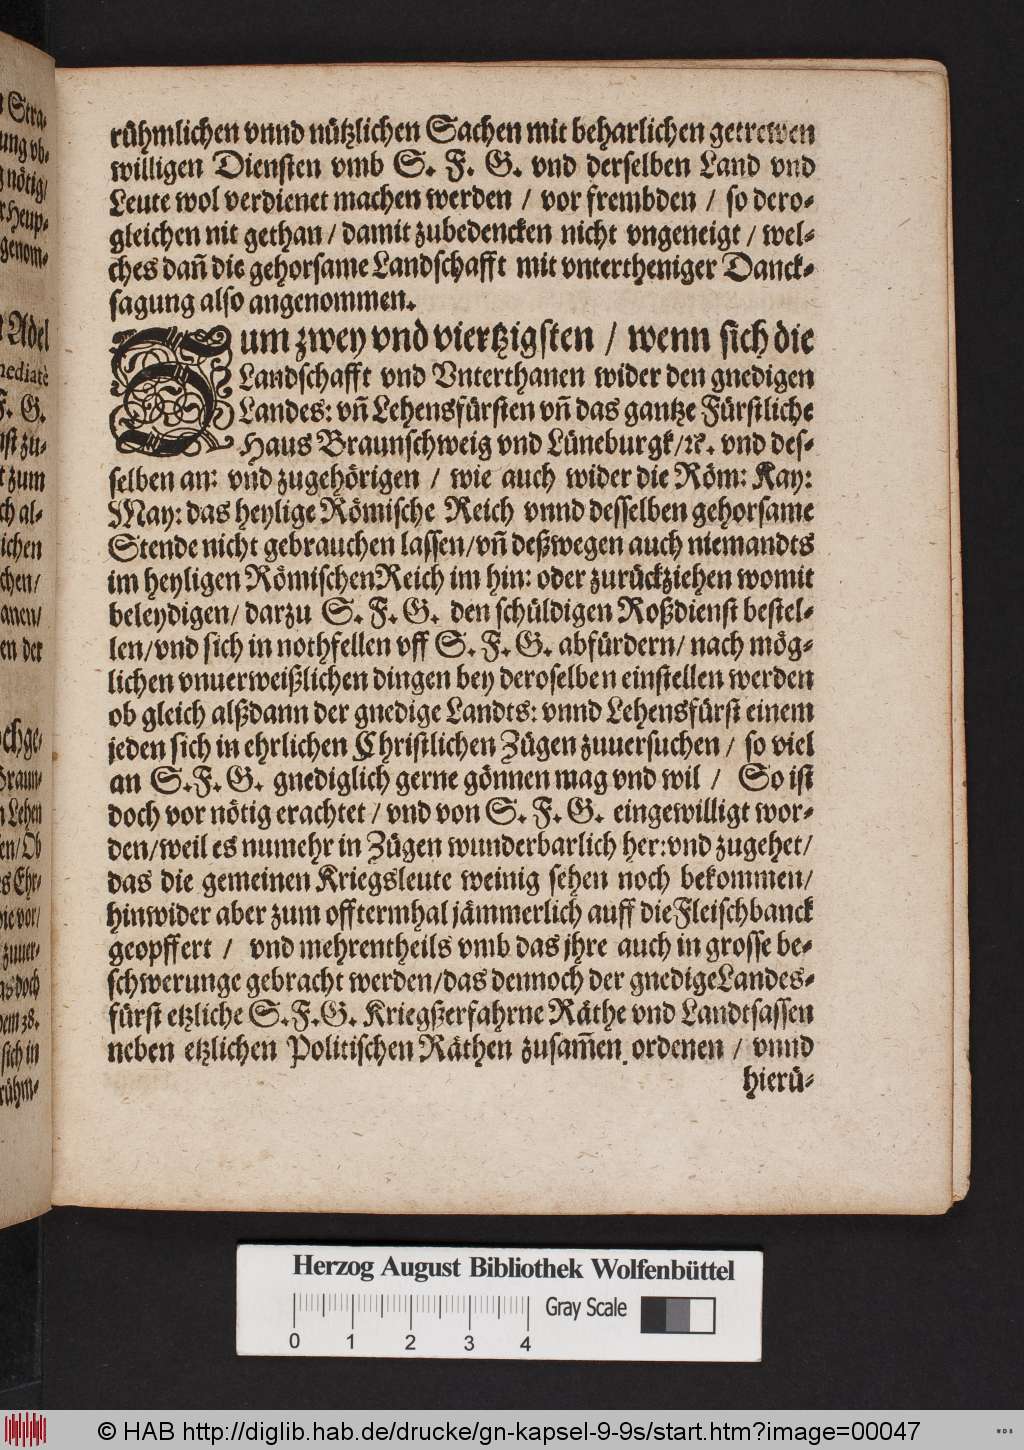 rühmlichen vnnd nützlichen Sachen mit beharlichen getrewen
willigen Diensten vmb S. F. G. vnd derselben Land vnd
Leute wol verdienet machen werden / vor frembden / so dero-
gleichen nit gethan / damit zubedencken nicht vngeneigt / wel-
ches dañ die gehorsame Landschafft mit vntertheniger Danck-
sagung also angenommen.
Zum zwey vnd viertzigsten / wenn sich die
Landschafft vnd Vnterthanen wider den gnedigen
Landes: vñ Lehensfürsten vñ das gantze Fürstliche
Haus Braunschweig vnd Lüneburgk/ꝛc. vnd des-
selben an: vnd zugehörigen / wie auch wider die Röm: Kay:
May: das heylige Römische Reich vnnd desselben gehorsame
Stende nicht gebrauchen lassen/vñ deßwegen auch niemandts
im heyligen Römischen Reich im hin: oder zurückziehen womit
beleydigen/ darzu S. F. G. den schüldigen Roßdienst bestel-
len/vnd sich in nothfellen vff S. F. G. abfürdern/ nach mög-
lichen vnuerweißlichen dingen bey deroselben einstellen werden
ob gleich alßdann der gnedige Landts: vnnd Lehensfürst einem
jeden sich in ehrlichen Christlichen Zügen zuuersuchen / so viel
an S. F. G. gnediglich gerne gönnen mag vnd wil / So ist
doch vor nötig erachtet / vnd von S. F. G. eingewilligt wor-
den/weil es numehr in Zügen wunderbarlich her:vnd zugehet/
das die gemeinen Kriegsleute weinig sehen noch bekommen/
hinwider aber zum offtermhal jämmerlich auff die Fleischbanck
geopffert / vnd mehrentheils vmb das jhre auch in grosse be-
schwerunge gebracht werden/das dennoch der gnedige Landes-
fürst etzliche S. F. G. Kriegßerfahrne Räthe vnd Landtsassen
neben etzlichen Politischen Räthen zusam̃en ordenen / vnnd
hierü-
Stra-
nötig/
Heup-
genom-
Adel
mediatè
F. G.
zum
al-
der
Lehen
Ob
vor/
zuuer-
doch
38.
sich in
rühm-
Herzog August Bibliothek Wolfenbüttel
0 1 2 3 4 Gray Scale
© HAB http://diglib.hab.de/drucke/gn-kapsel-9-9s/start.htm?image=00047